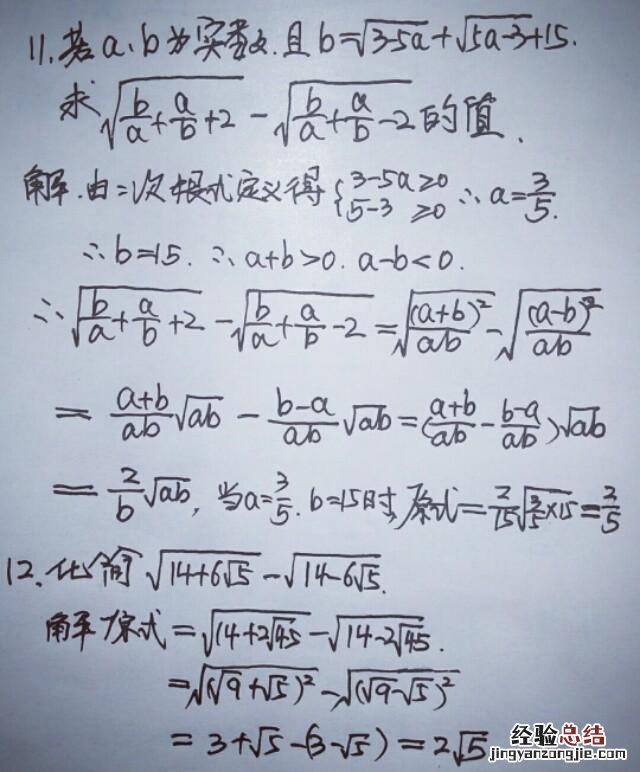 11.若a、b为实数.且b=√(3-5a)+√(5a-3)+15.
求√(b/a+a/b+2)-√(b/a+a/b-2)的值.
解.由二次根式定义得{3-5a≥0 5-3 ≥0 ∴a=3/5.
∴b=15. ∴a+b>0. a-b<0.
∴√(b/a+a/b+2)-√(b/a+a/b-2)=√((a+b)²/ab)-√((a-b)²/ab)
=(a+b)/ab√ab-(b-a)/ab√ab=((a+b)/ab-(b-a)/ab)√ab
=2/b√ab,当a=3/5.b=15时,原式=2/15√(3/5×15)=2/5
12.化简√(14+6√5)-√(14-6√5).
解原式=√(14+2√45)-√(14-2√45).
=√(√9+√5)²-√(√9-√5)²
=3+√5-(3-√5)=2√5
经验总结
jingyanzongjie.com